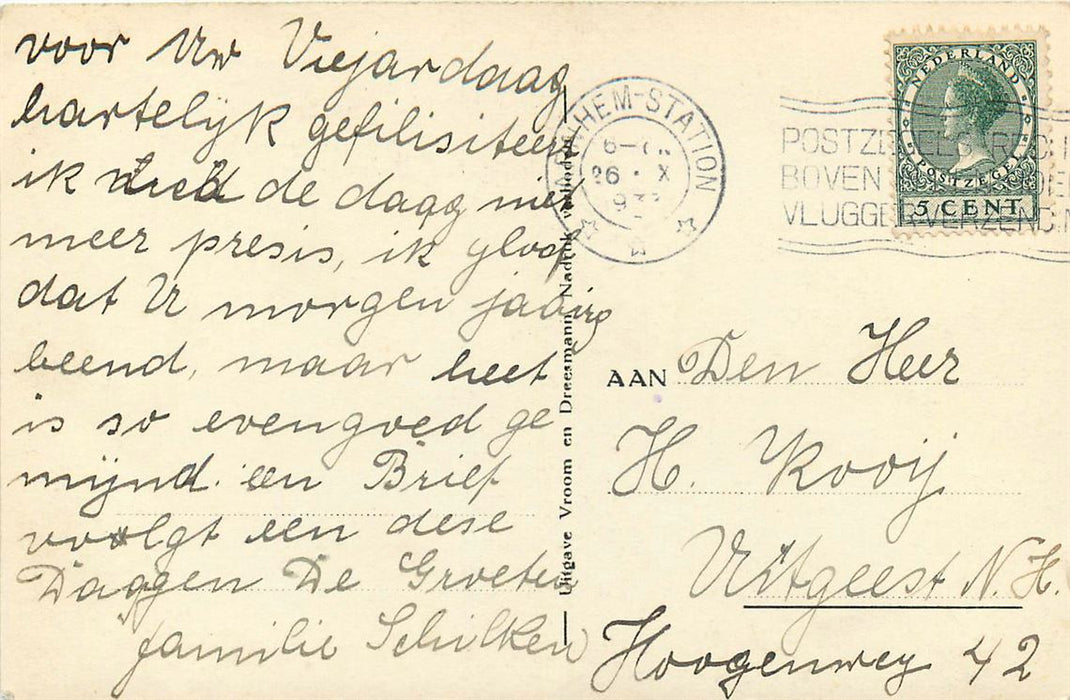 voor Uw Viejardaag
hartelijk gefilisiteert
ik de daag niet
meer presis, ik gloof
dat U morgen jaarig
beend, maar heet
is so evengoed ge
mijnd. een Brief
voolgt een dese
Daggen De Groeten
familie Schilken
Uitgave Vroom en Dreesmann Nadruk verboden
ARNHEM-STATION
26 X
POSTZEGELS RECHTS
BOVEN
VLUGGER VERZENDING
NEDERLAND
POSTZEGEL
5 CENT
AAN Den Heer
H. Kooij
Uitgeest N.H.
Hoogenweg 42